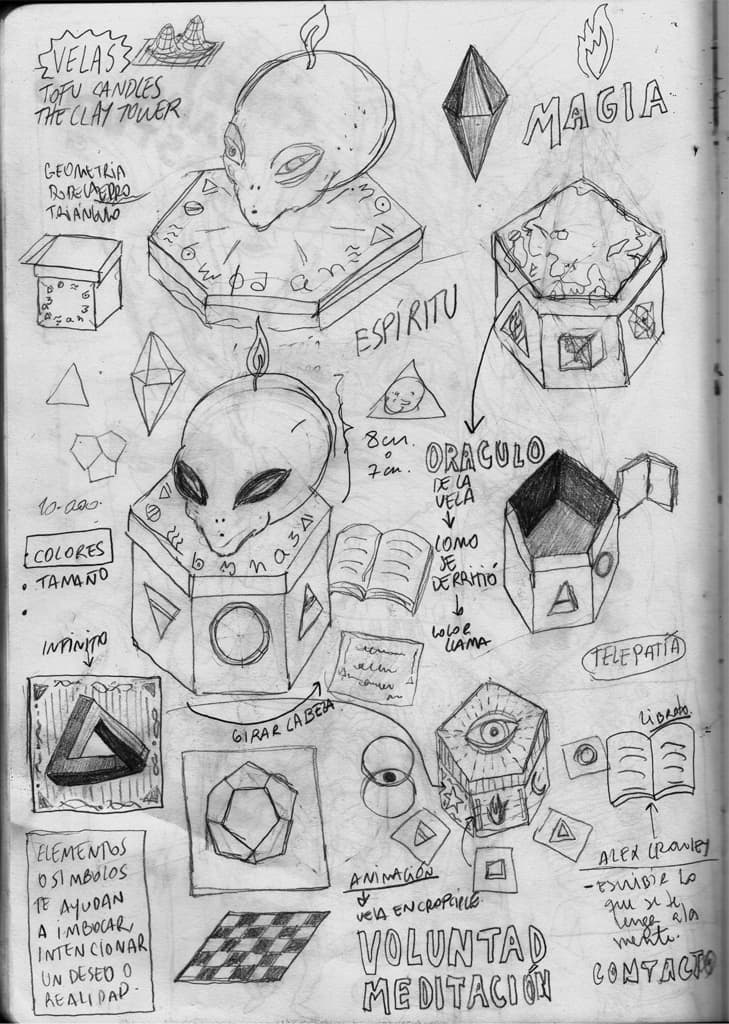 VELAS
TOFU CANDLES
THE CLAY TOWER
MAGIA
GEOMETRIA
TRIÁNGULO
ESPÍRITU
8cm.
o
7cm.
ORACULO
DE LA
VELA
COMO
SE
DERRITIÓ
COLOR
LLAMA
10.000
COLORES
• TAMAÑO
•
INFINITO
TELEPATÍA
GIRAR CABEZA
LIBRETO
ELEMENTOS
O SIMBOLOS
TE AYUDAN
A IMBOCAR,
INTENCIONAR
UN DESEO O
REALIDAD.
ANIMACIÓN
VELA EN CROPCIRCLE
VOLUNTAD
MEDITACIÓN
ALEX CROWLEY
- ESCRIBIR LO
que se te
venga a la
mente.
CONTACTO